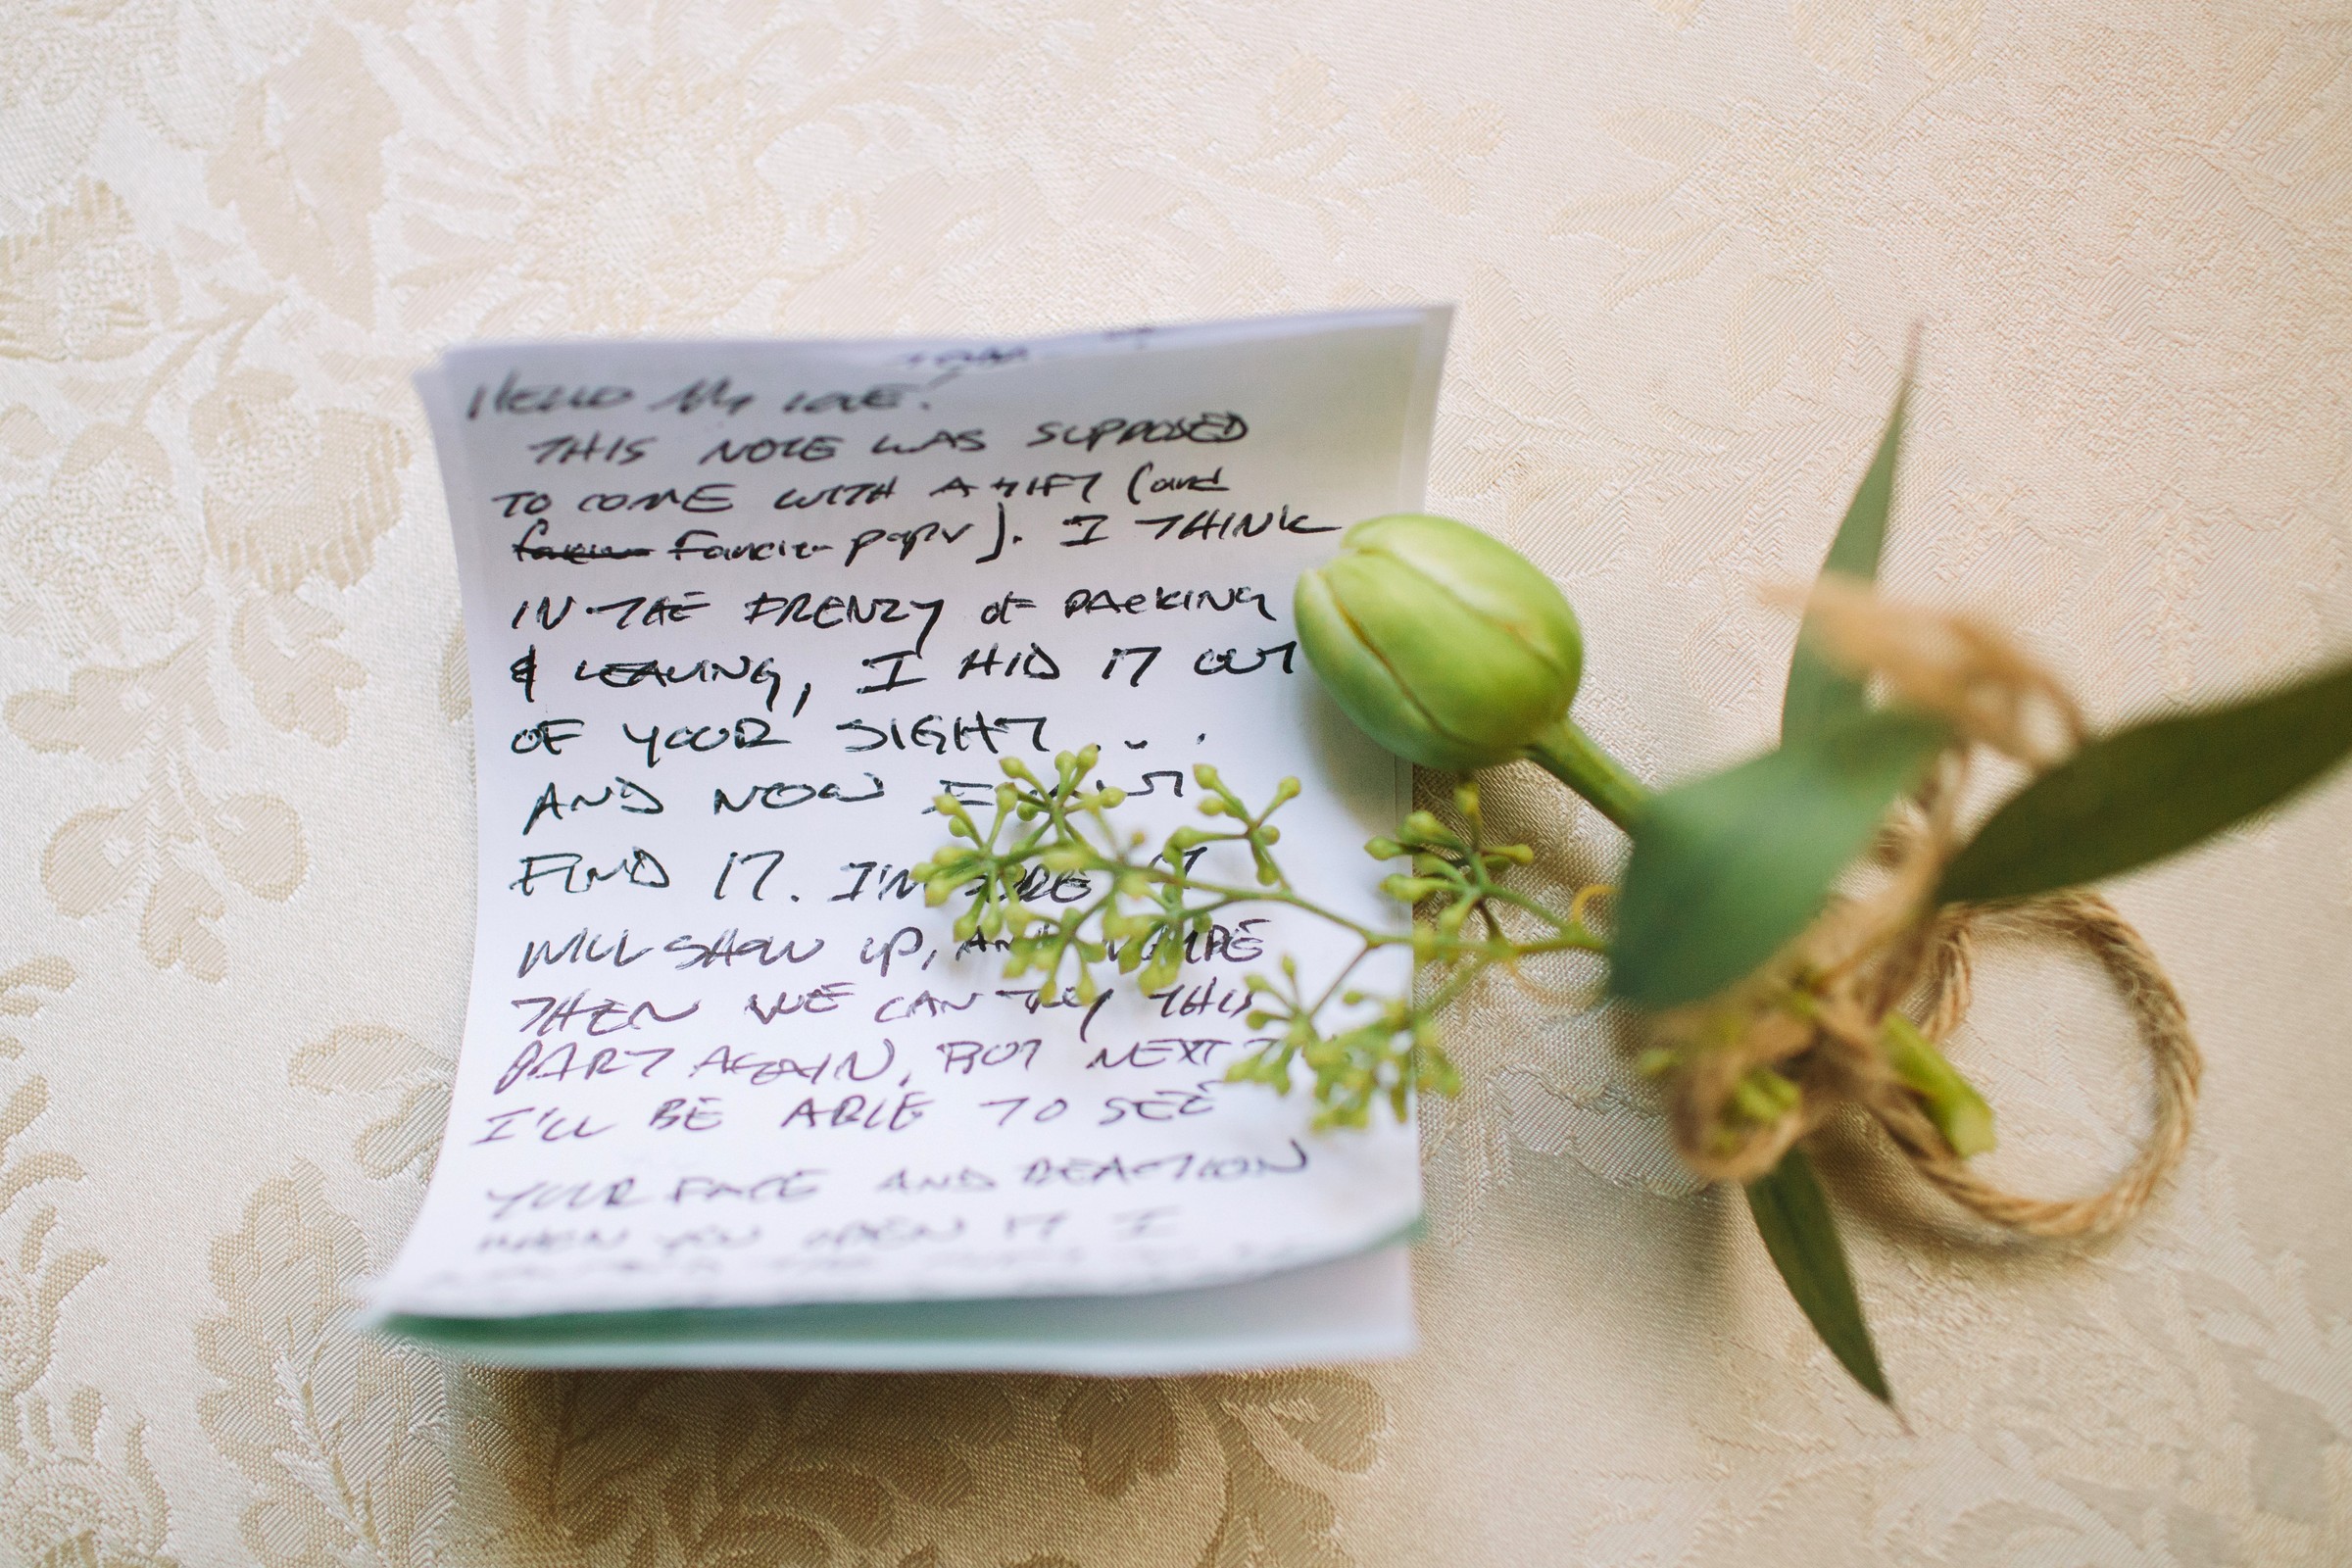 Hello My love!
THIS NOTE WAS SUPPOSED
TO COME WITH A GIFT (and
Fancier paper). I THINK
IN THE FRENZY of PACKING
& LEAVING, I HID IT OUT
OF YOUR SIGHT...
AND NOW I
FIND IT. I'M SURE IT
WILL SHOW UP, AND MAYBE
THEN WE CAN TRY THIS
PART AGAIN, BUT NEXT
I'LL BE ABLE TO SEE
YOUR FACE AND REACTION
WHEN YOU OPEN IT I